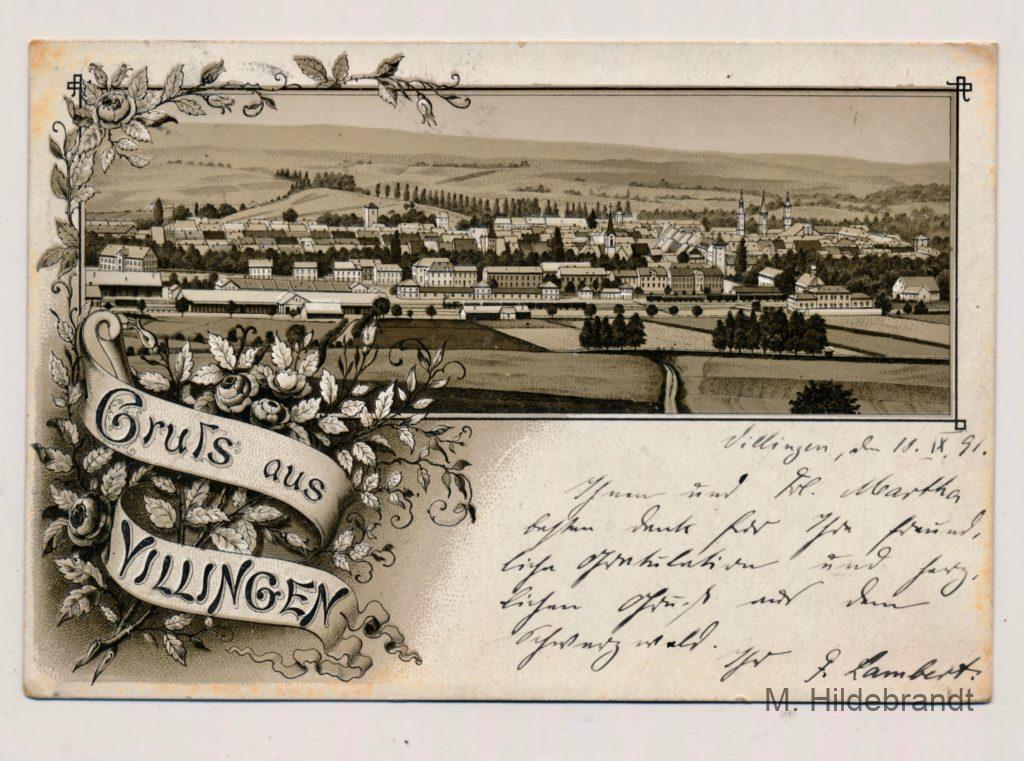 Gruſs aus
VILLINGEN
Villingen, den 10. IX. 91.
Ihnen und Frl. Martha
besten Dank für Ihre freund-
liche Gratulation und herz-
lichen Gruß aus dem
Schwarzwald.
Ihr J. Lambert.
M. Hildebrandt